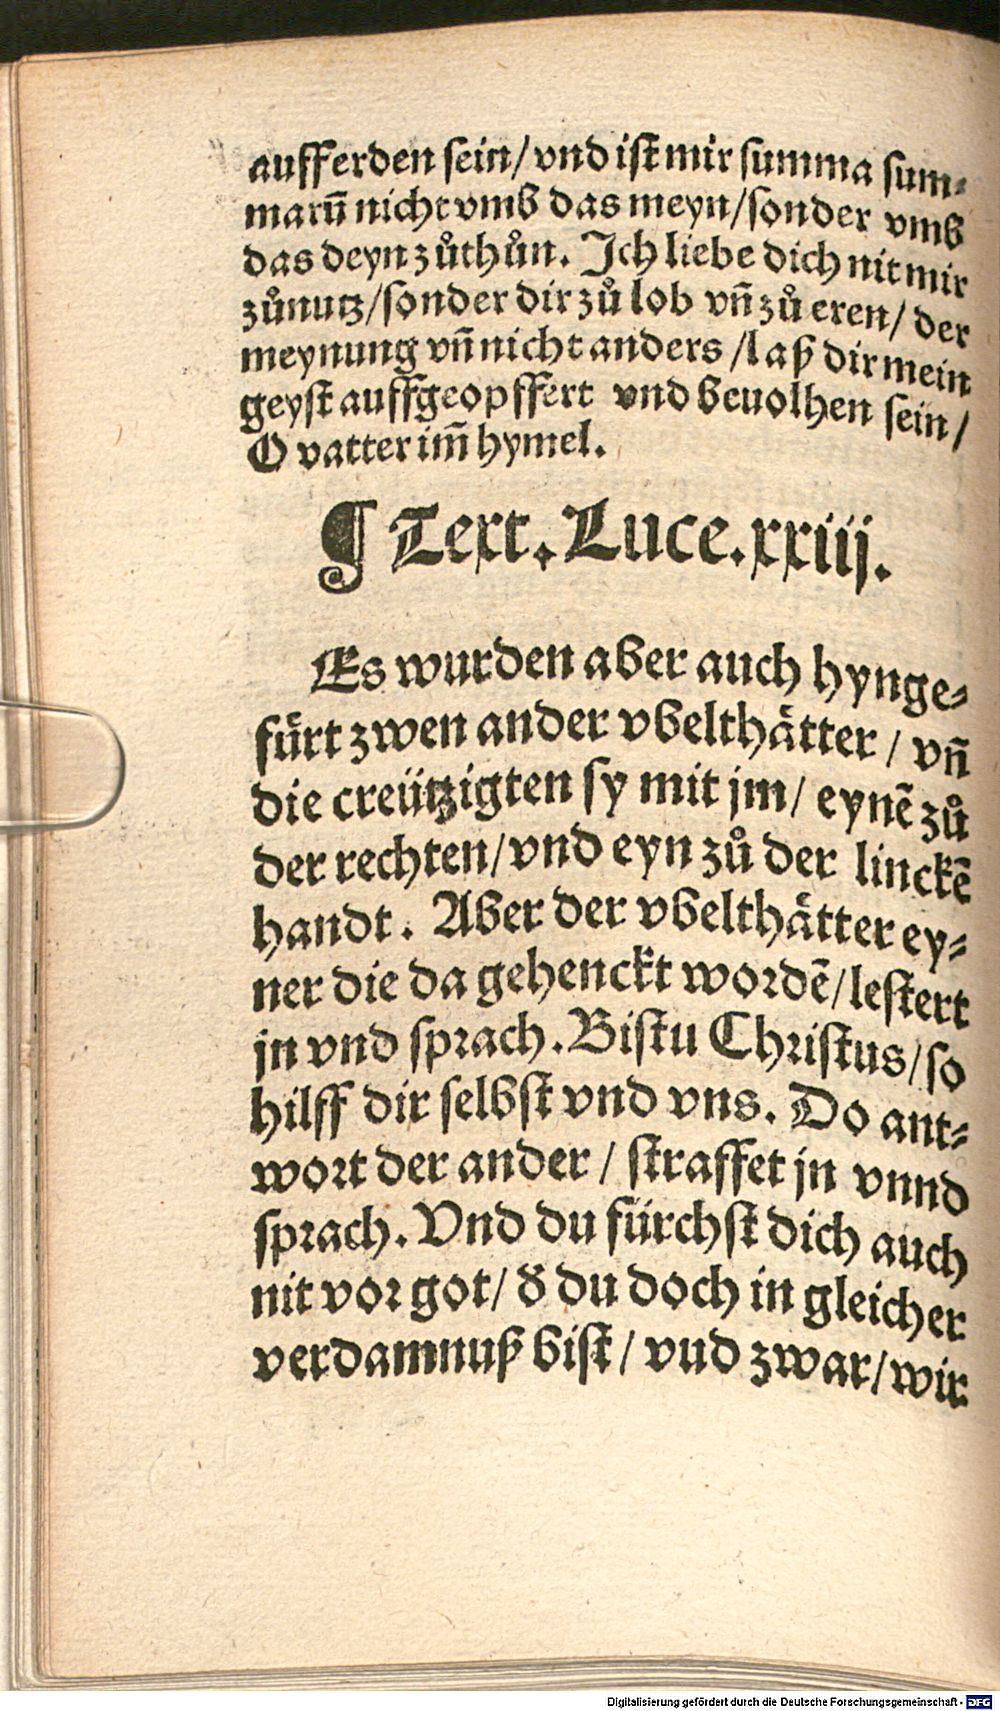 aufferden sein/ vnd ist mir summa sum⸗
marū nicht vmb das meyn/sonder vmb
das deyn zůthůn. Ich liebe dich nit mir
zůnutz/sonder dir zů lob vñ zů eren/ der
meynung vñ nicht anders /laß dir mein
geyst auffgeopffert vnd beuolhen sein/
O vatter im̄ hymel.
¶ Text. Luce. xxiij.
Es wurden aber auch hynge⸗
fürt zwen ander vbelthätter / vñ
die creützigten sy mit jm/ eynē zů
der rechten/vnd eyn zů der linckē
handt. Aber der vbelthätter ey⸗
ner die da gehenckt wordē/lestert
jn vnd sprach. Bistu Christus/so
hilff dir selbst vnd vns. Do ant⸗
wort der ander / straffet jn vnnd
sprach. Vnd du fürchst dich auch
nit vor got/ d̕ du doch in gleicher
verdamnuß bist/ vud zwar/wir
Digitalisierung gefördert durch die Deutsche Forschungsgemeinschaft - DFG